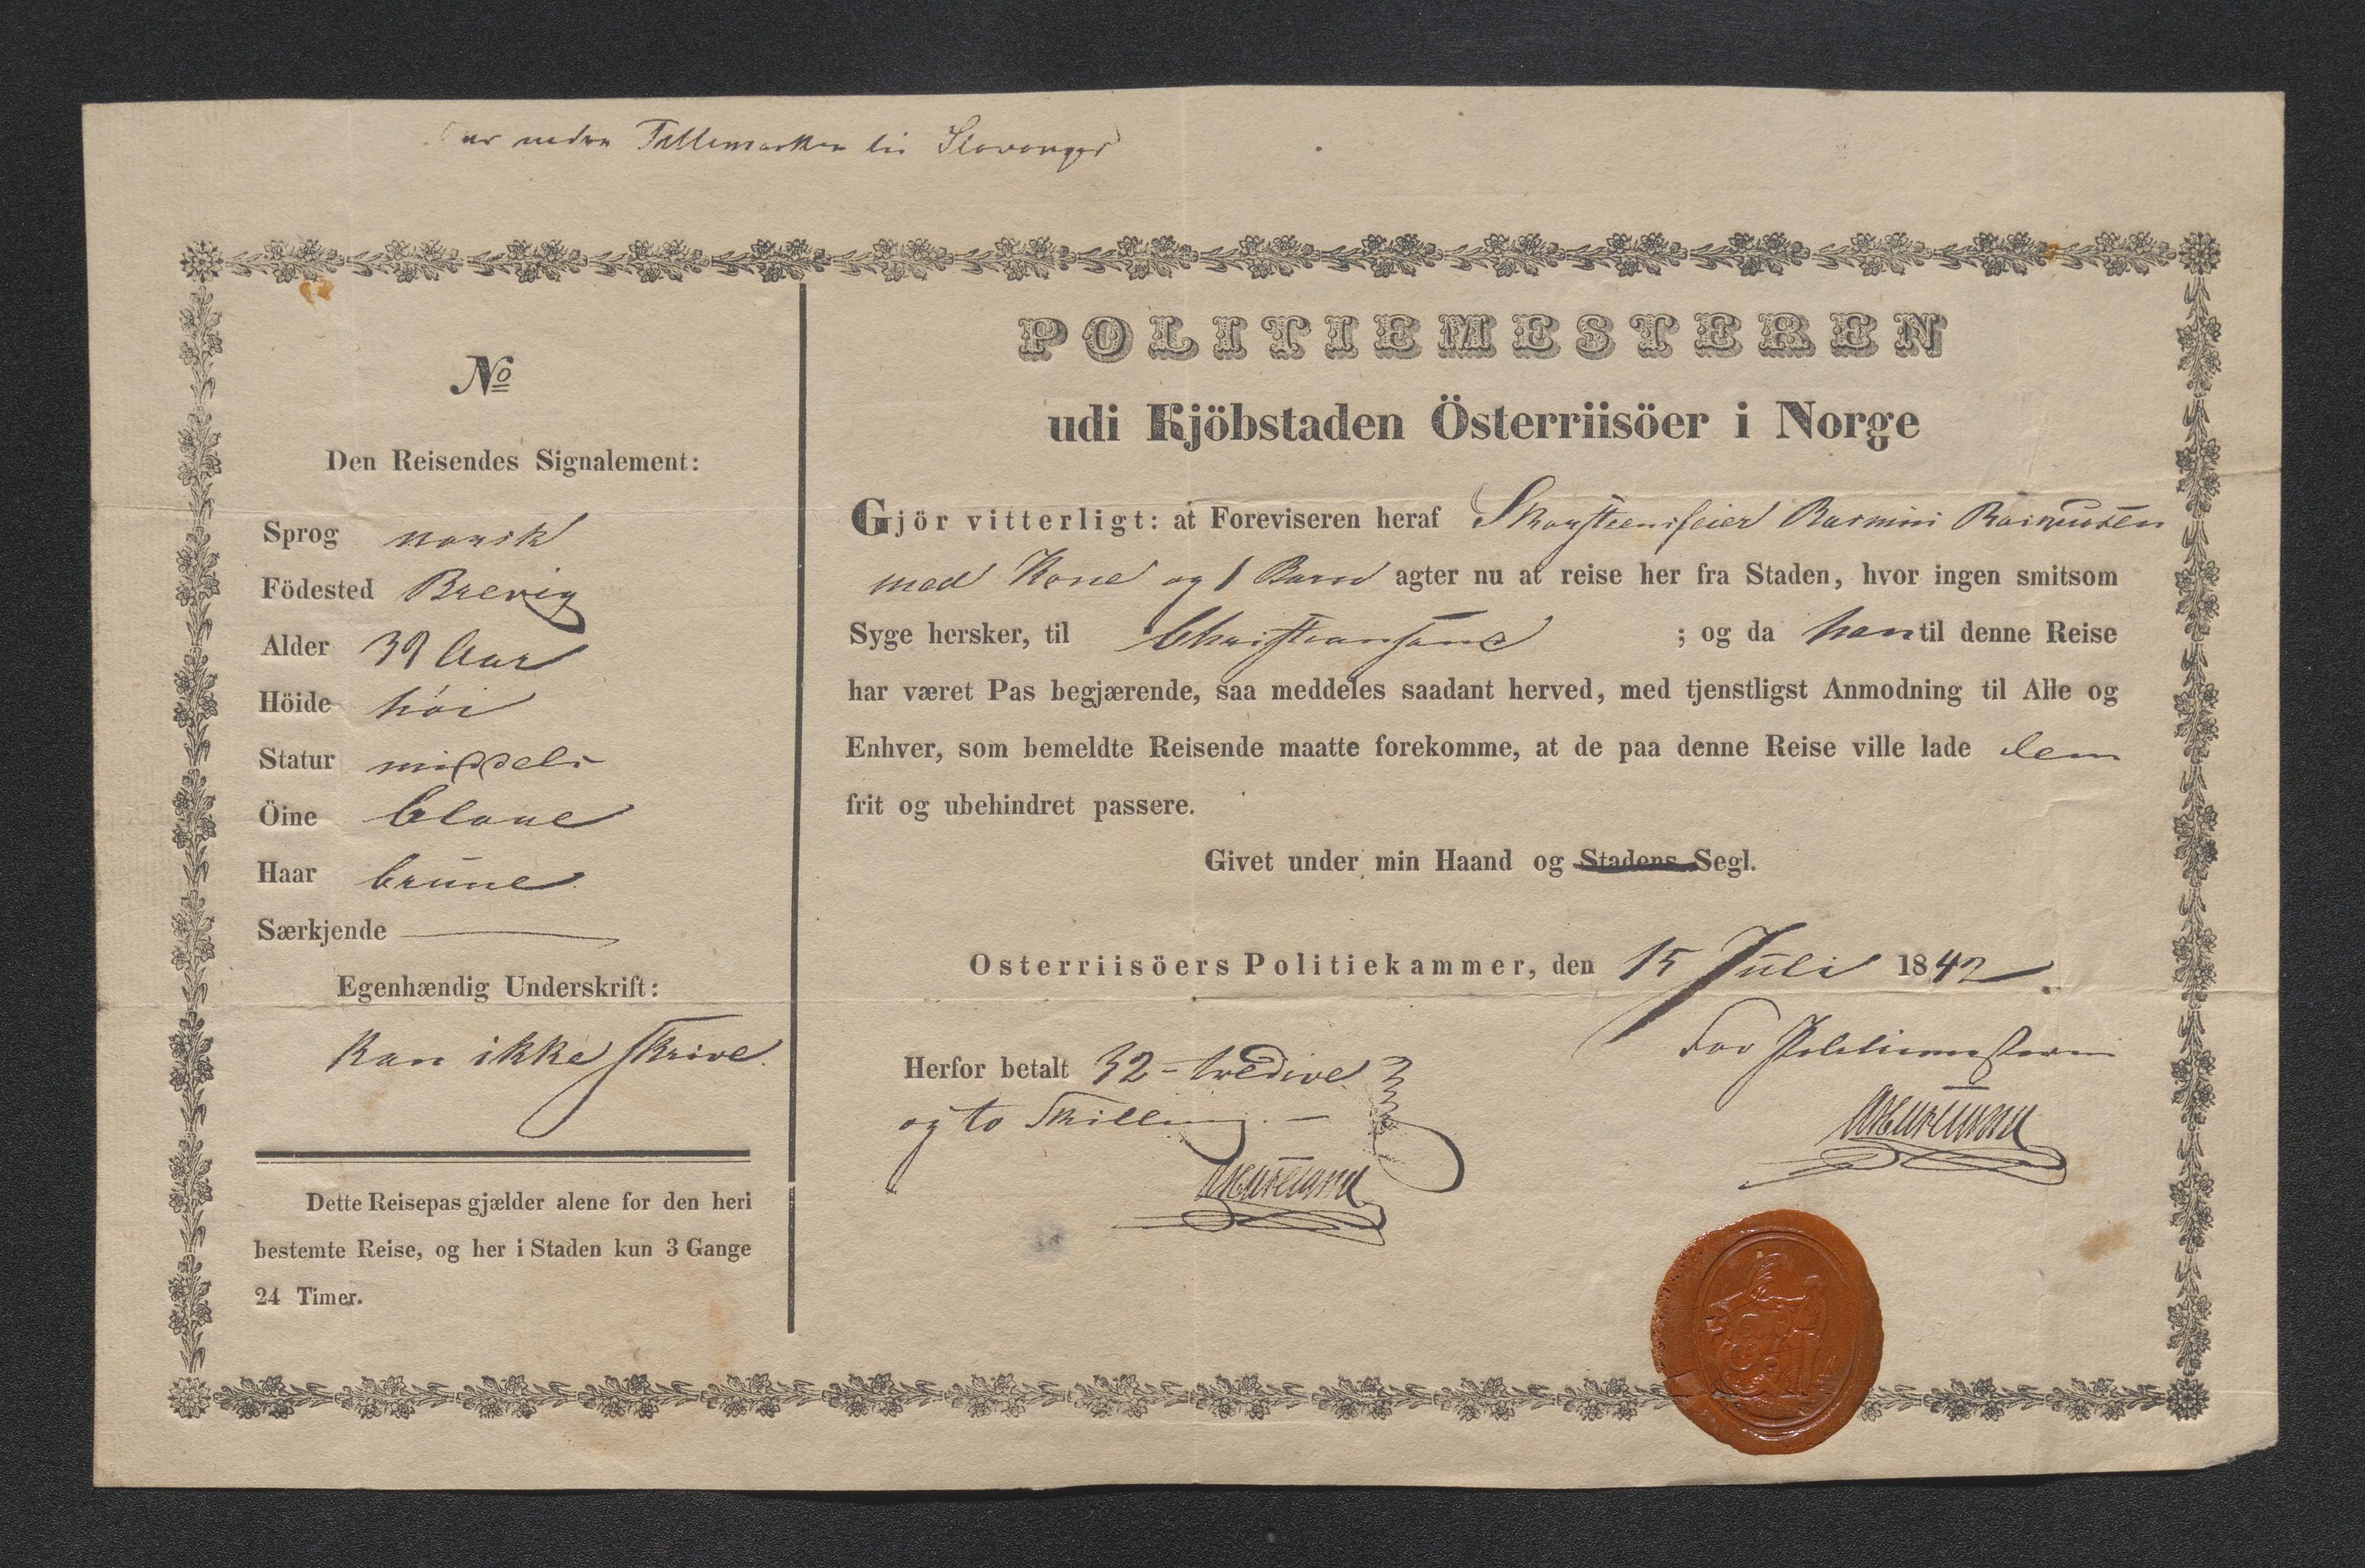 nedre Tellemarken til Stavanger
No
Den Reisendes Signalement:
Sprog norsk
Födested Brevig
Alder 39 Aar
Höide höi
Statur middels
Öine blaae
Haar brune
Særkjende
Egenhændig Underskrift:
Kan ikke skrive.
Dette Reisepas gjælder alene for den heri
bestemte Reise, og her i Staden kun 3 Gange
24 Timer.
POLITIEMESTEREN
udi Kjöbstaden Österriisöer i Norge
Gjör vitterligt: at Foreviseren heraf Skorsteensfeier Rasmus Rasmusen
med Kone og 1 Barn agter nu at reise her fra Staden, hvor ingen smitsom
Syge hersker, til Christiansand ; og da han til denne Reise
har været Pas begjærende, saa meddeles saadant herved, med tjenstligst Anmodning til Alle og
Enhver, som bemeldte Reisende maatte forekomme, at de paa denne Reise ville lade dem
frit og ubehindret passere.
Givet under min Haand og Stadens Segl.
Osterriisöers Politiekammer, den 15 Juli 1842.
For Politiemesteren
Herfor betalt 32 - tredive
og to Skilling. -